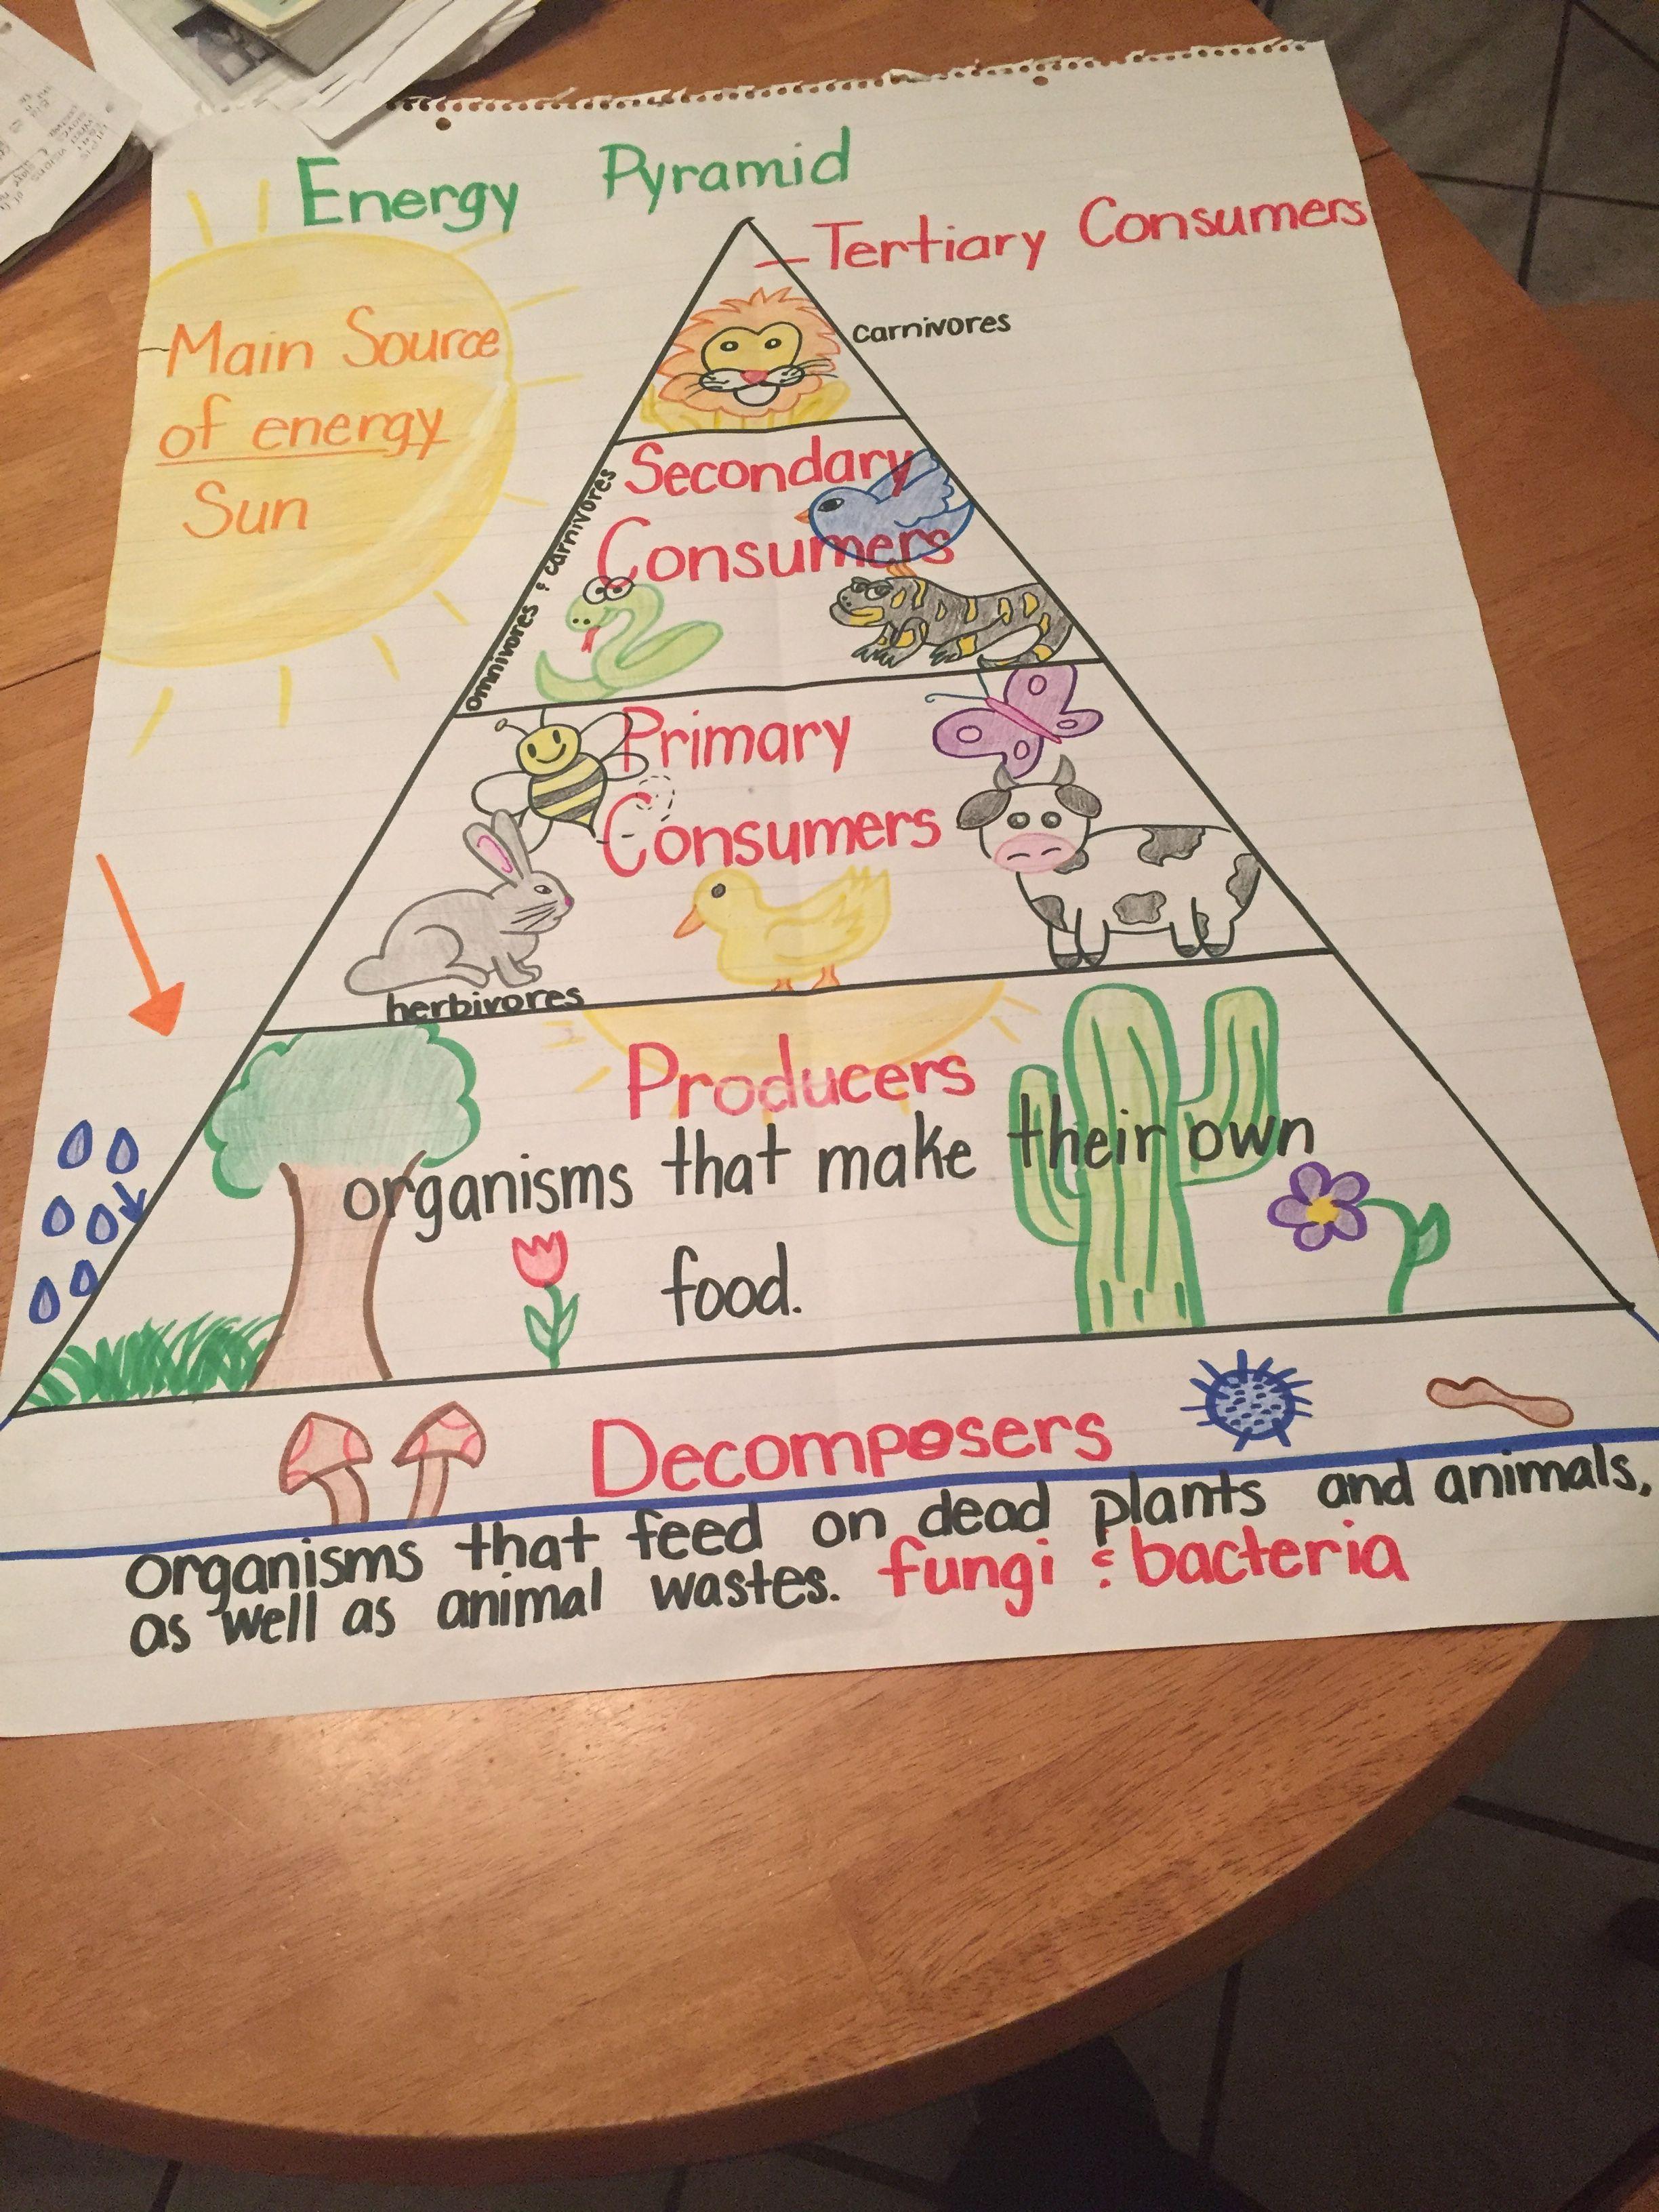 Energy Pyramid
Tertiary Consumers
carnivores
Main Source
of energy
Sun
Secondary
Consumers
omnivores & carnivores
Primary
Consumers
herbivores
Producers
organisms that make their own
food.
Decomposers
organisms that feed on dead plants and animals,
as well as animal wastes. fungi & bacteria